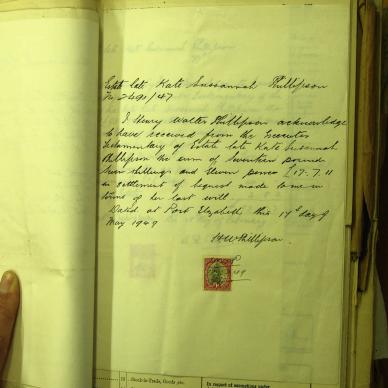 Estate late Kate Sussannah Phillipson
No 2491/47
I Henry Walter Phillipson acknowledge
to have received from the Executor
Testamentary of Estate late Kate Susannah
Phillipson the sum of Seventeen pound
shillings and Eleven pence £17. 7. 11
in settlement of bequest made to me in
terms of her last will.
Dated at Port Elizabeth this 17th day of
May 1949
HWPhillipson.
49
Stock-in-Trade, Goods etc.
In respect of